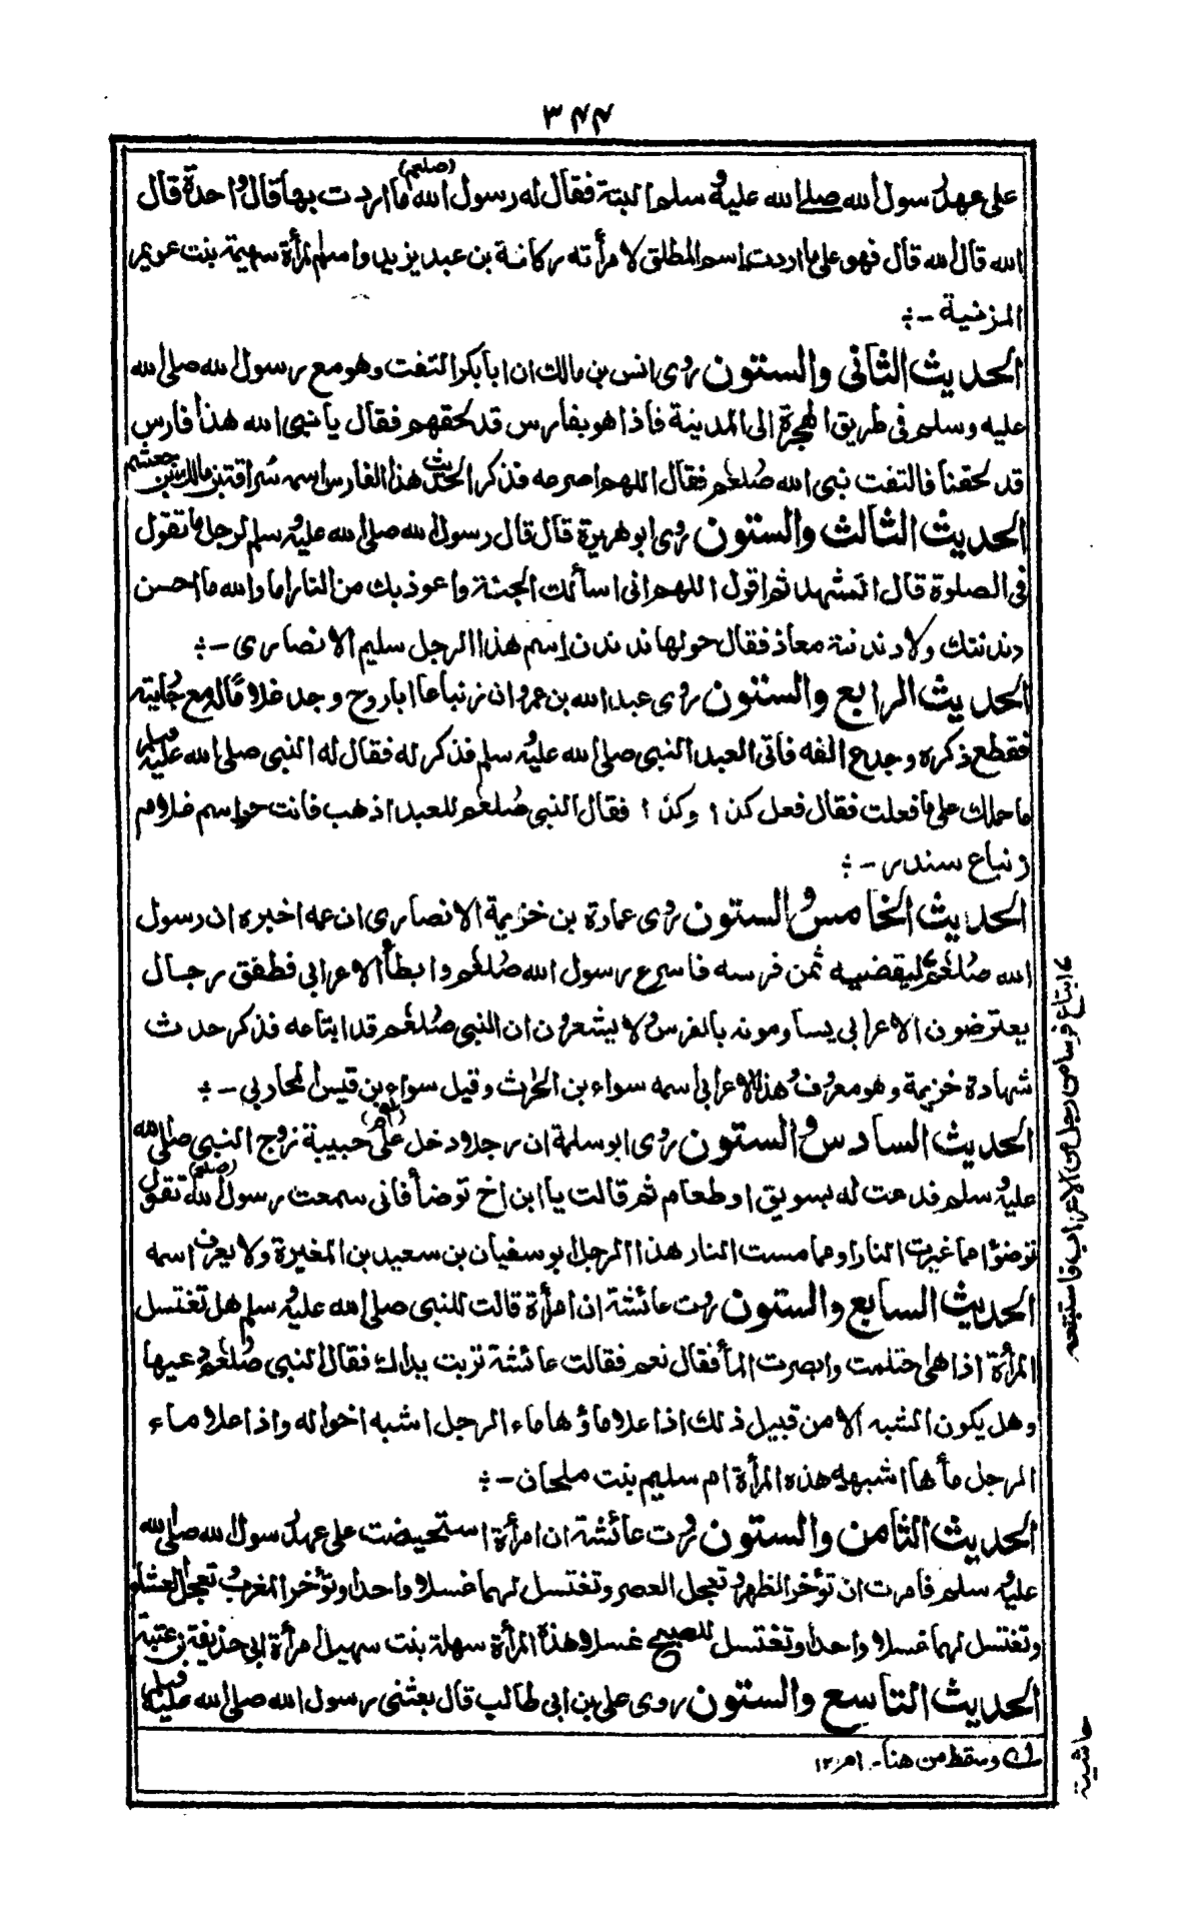 ٣٤٤
على عهد رسول الله صلے الله عليه و سلم البتة فقال له رسول الله (صلعم) ما اردت بها قال واحدة قال
الله قال الله قال فهو على ما اردت اسم المطلق لامرأته ركانة بن عبد يزيد واسم المرأة سهيمة بنت عويمر
المزنية -:
الحديث الثانى والستون روى انس بن مالك ان ابا بكر التفت وهو مع رسول الله صلى الله
عليه وسلم فى طريق الهجرة الى المدينة فاذا هو بفارس قد لحقهم فقال يا نبى الله هذا فارس
قد لحقنا فالتفت نبى الله صلعم فقال اللهم اصرعه فذكر الحديث هذا الفارس اسمه سراقة بن مالك بن جعشم
الحديث الثالث والستون روى ابو هريرة قال قال رسول الله صلى الله عليه وسلم لرجل ما تقول
فى الصلوة قال اتشهد ثم اقول اللهم انى اسألك الجنة واعوذ بك من النار اما والله ما احسن
دندنتك ولا دندنة معاذ فقال حولها ندندن اسم هذا الرجل سليم الانصارى -:
الحديث الرابع والستون روى عبد الله بن عمرو ان زنباعا ابا روح وجد غلاما له مع جاريته
فقطع ذكره وجدع انفه فاتى العبد النبى صلى الله عليه وسلم فذكر له فقال له النبى صلى الله عليه وسلم
ما حملك على ما فعلت فقال فعل كذا وكذا فقال النبى صلعم للعبد اذهب فانت حر اسم غلام
زنباع سندر -:
الحديث الخامس والستون روى عمارة بن خزيمة الانصارى ان عمه اخبره ان رسول
الله صلعم ليقضيه ثمن فرسه فاسرع رسول الله صلعم وابطأ الاعرابى فطفق رجال
يعترضون الاعرابى يساومونه بالفرس ولا يشعرون ان النبى صلعم قد ابتاعه فذكر حديث
شهادة خزيمة وهو معروف وهذا الاعرابى اسمه سواء بن الحارث وقيل سواء بن قيس المحاربى -:
الحديث السادس والستون روى ابو سلمة ان رجلا دخل على (ام) حبيبة زوج النبى صلى الله
عليه وسلم فدعت له بسويق او طعام ثم قالت يا ابن اخ توضأ فانى سمعت رسول الله (صلعم) تقول
توضؤا مما غيرت النار او مما مست النار هذا الرجل ابو سفيان بن سعيد بن المغيرة ولا يعرف اسمه
الحديث السابع والستون روت عائشة ان امرأة قالت للنبى صلى الله عليه وسلم هل تغتسل
المرأة اذا هى احتلمت وابصرت الماء فقال نعم فقالت عائشة تربت يداك فقال النبى صلعم دعيها
وهل يكون الشبه الا من قبيل ذلك اذا علا ماؤها ماء الرجل اشبه اخواله واذا علا ماء
الرجل مأها اشبهه هذه المرأة ام سليم بنت ملحان -:
الحديث الثامن والستون روت عائشة ان امرأة استحيضت على عهد رسول الله صلى الله
عليه وسلم فامرت ان تؤخر الظهر وتعجل العصر وتغتسل لهما غسلا واحدا وتؤخر المغرب وتعجل العشاء
وتغتسل لهما غسلا واحدا وتغتسل للصبح غسلا هذه المرأة سهلة بنت سهيل امرأة ابى حذيفة بن عتبة
الحديث التاسع والستون روى على بن ابى طالب قال بعثنى رسول الله صلى الله عليه وسلم
وسقط من هنا - ام ١٢
ابتاع فرسا من رجل من الاعراب فاستتبعه
حاشية